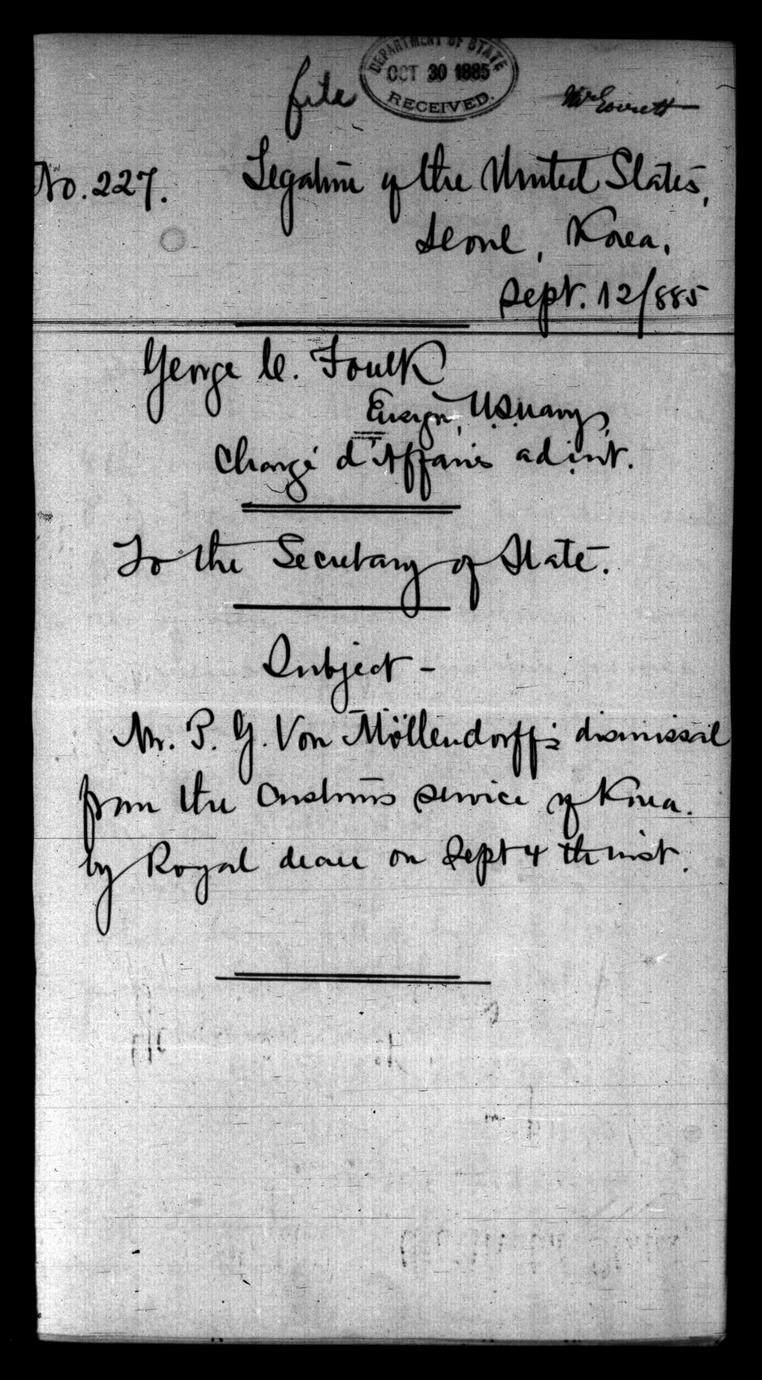 DEPARTMENT OF STATE
OCT 30 1885
RECEIVED.
file
Mr Everett
No. 227. Legation of the United States,
Seoul, Korea,
Sept. 12/885
George C. Foulk
Ensign, U.S. Navy,
Chargé d'Affaires ad int.
To the Secretary of State.
Subject -
Mr. P. G. Von Möllendorff's dismissal
from the Customs service of Korea.
by Royal decree on Sept 4th inst.